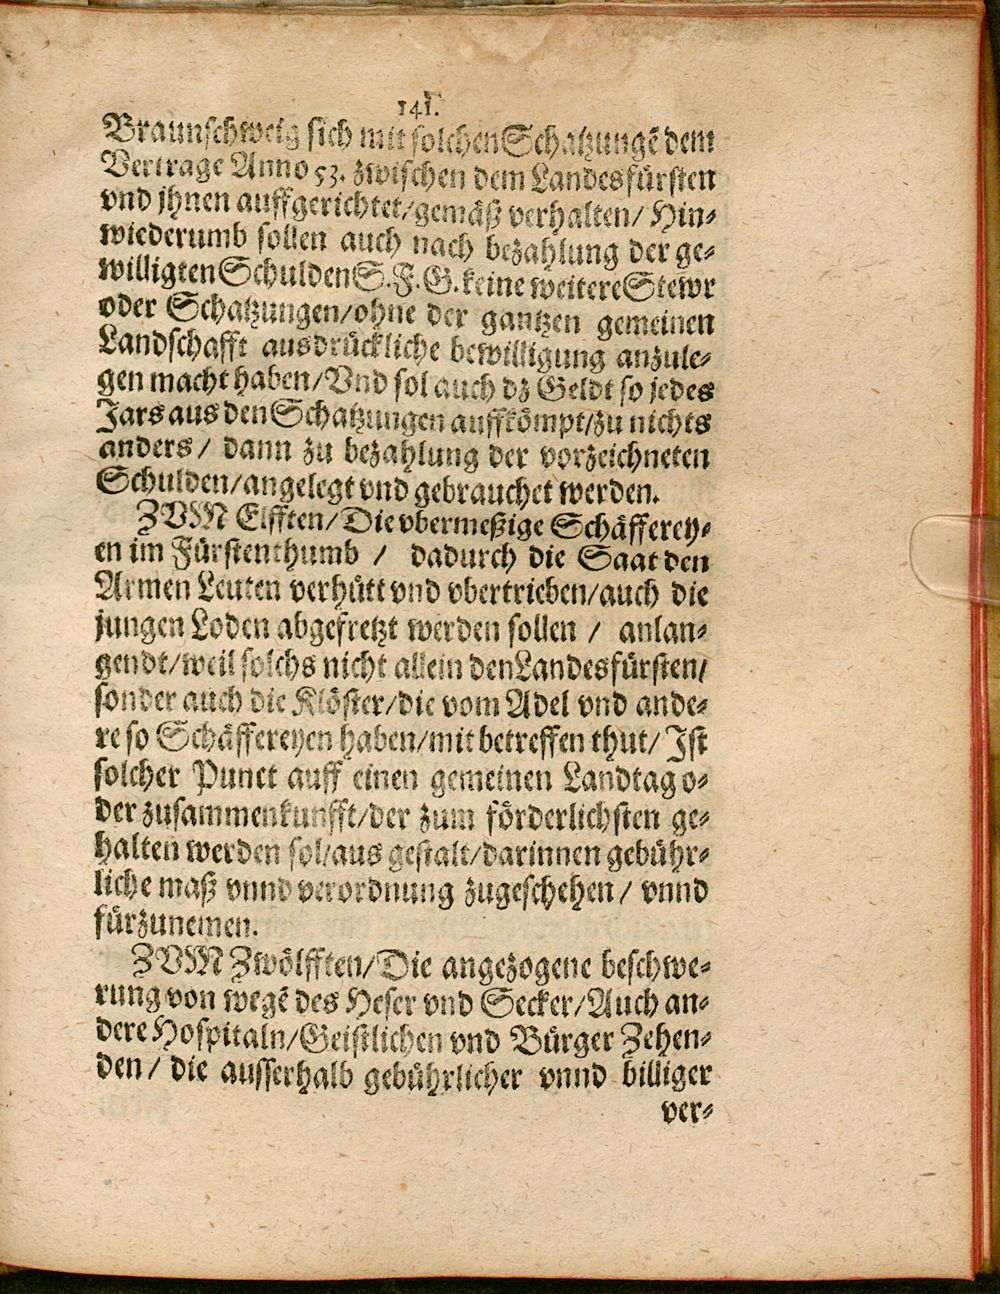 141.
Braunschweig sich mit solchen Schatzungẽ dem
Vertrage Anno 53. zwischen dem Landesfürsten
vnd jhnen auffgerichtet/gemäß verhalten/ Hin-
wiederumb sollen auch nach bezahlung der ge-
willigten Schulden S. F. G. keine weitere Stewr
oder Schatzungen/ohne der gantzen gemeinen
Landschafft ausdrückliche bewilligung anzule-
gen macht haben/Vnd sol auch dz Geldt so jedes
Jars aus den Schatzungen auffkömpt/zu nichts
anders/ dann zu bezahlung der vorzeichneten
Schulden/angelegt vnd gebrauchet werden.
ZVM Eilfften/Die vbermeßige Schäfferey-
en im Fürstenthumb / dadurch die Saat den
Armen Leuten verhütt vnd vbertrieben/auch die
jungen Loden abgefretzt werden sollen / anlan-
gendt/weil solchs nicht allein den Landesfürsten/
sonder auch die Klöster/die vom Adel vnd ande-
re so Schäffereyen haben/mit betreffen thut/ Ist
solcher Punct auff einen gemeinen Landtag o-
der zusammenkunfft/der zum förderlichsten ge-
halten werden sol/aus gestalt/darinnen gebühr-
liche maß vnnd verordnung zugeschehen/ vnnd
fürzunemen.
ZVM Zwölfften/Die angezogene beschwe-
rung von wegẽ des Heser vnd Secker/Auch an-
dere Hospitaln/Geistlichen vnd Bürger Zehen-
den/ die ausserhalb gebührlicher vnnd billiger
ver-